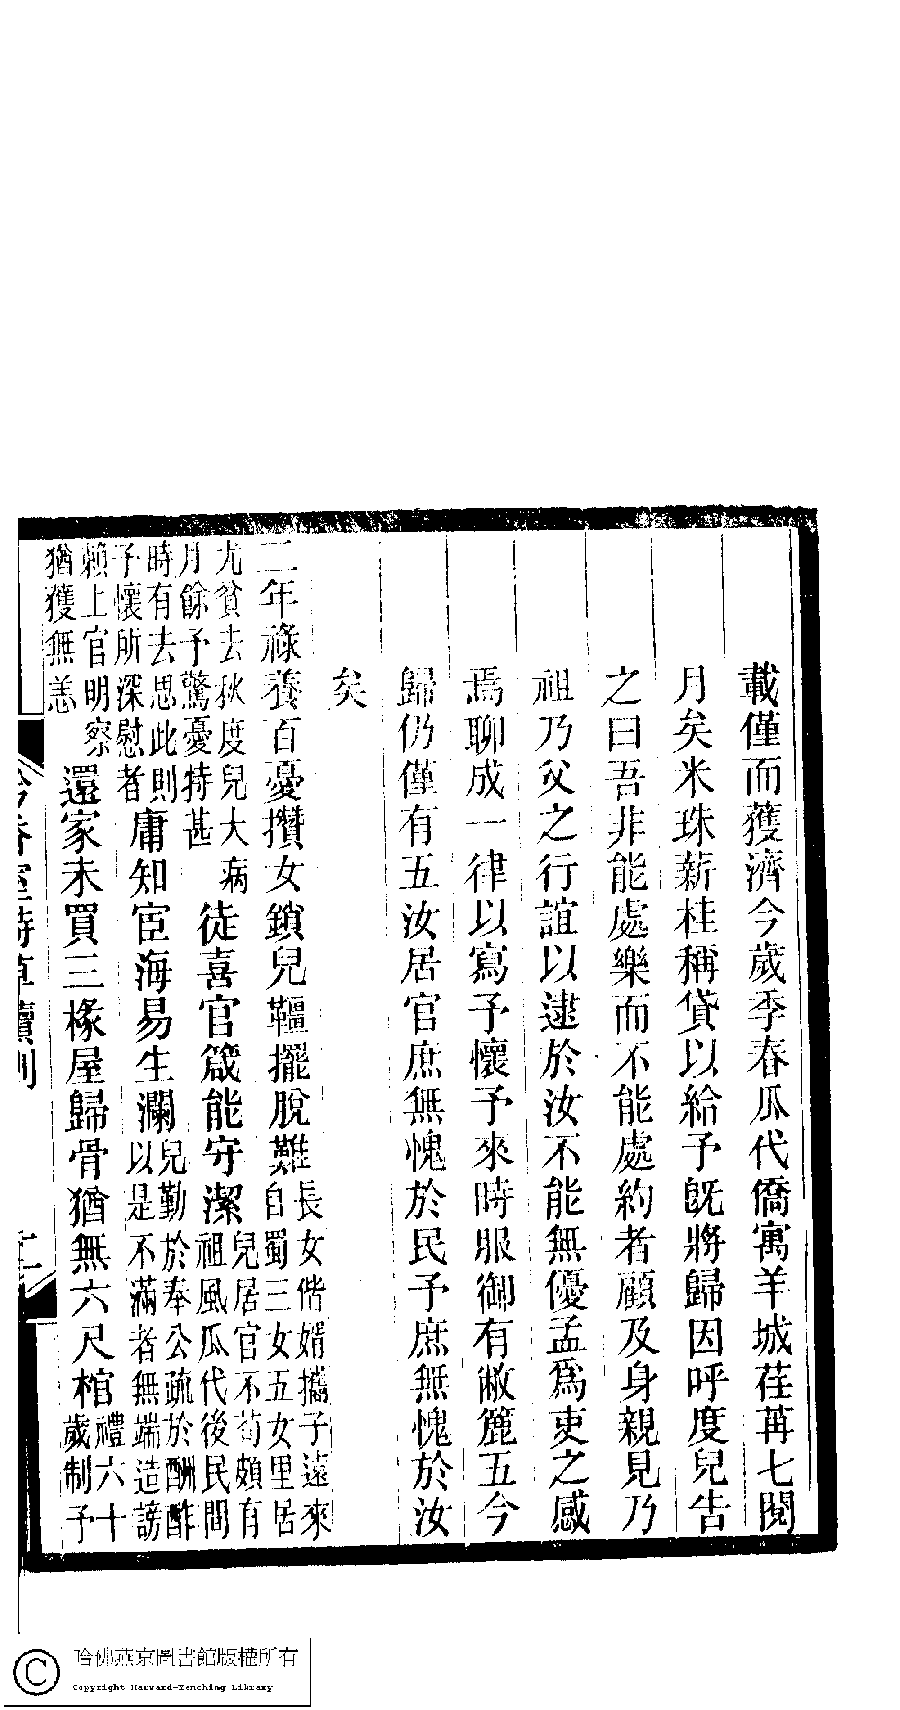 載僅而獲濟今歲季春瓜代僑寓羊城荏苒七閱
月矣米珠薪桂稱貸以給予旣將歸因呼度兒告
之曰吾非能處樂而不能處約者顧及身親見乃
祖乃父之行誼以逮於汝不能無優孟爲吏之感
焉聊成一律以寫予懷予來時服御有敝簏五今
歸仍僅有五汝居官庶無愧於民予庶無愧於汝
矣
三年祿養百憂攢女鎖兒韁擺脫難長女偕婿攜子遠來自蜀三女五女里居
尤貧去秋度兒大病月餘予驚憂特甚徒喜官箴能守潔兒居官不苟頗有祖風瓜代後民間
時有去思此則予懷所深慰者庸知宦海易生瀾兒勤於奉公疏於酬酢以是不滿者無端造謗
賴上官明察猶獲無恙還家未買三椽屋歸骨猶無六尺棺禮六十歲制予
哈佛燕京圖書館版權所有
Copyright Harvard-Yenching Library